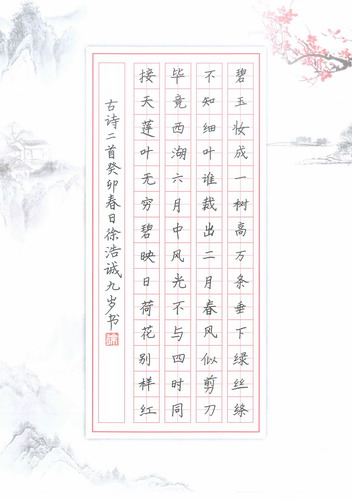 碧玉妆成一树高万条垂下绿丝绦
不知细叶谁裁出二月春风似剪刀
毕竟西湖六月中风光不与四时同
接天莲叶无穷碧映日荷花别样红
古诗二首癸卯春日徐浩诚九岁书